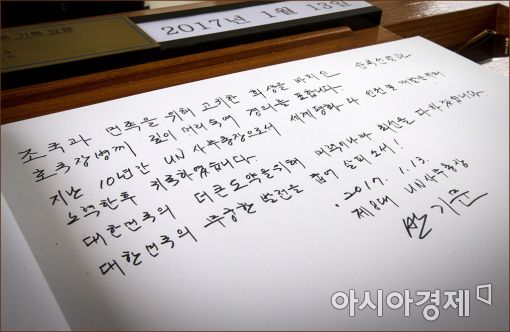 2017년 1월 13일
조국과 민족을 위해 고귀한 희생을 바치신 순국선열과
호국장병께 깊이 머리숙여 경의를 표합니다.
지난 10년간 UN 사무총장으로서 세계평화와 인권 및 개발을 위해
노력한 후 귀국하였습니다.
대한민국의 더 큰 도약을 위해 미력이나마 최선을 다하겠습니다.
대한민국의 무궁한 발전을 굽어 살피소서!
2017. 1. 13.
제8대 UN사무총장
반기문
아시아경제